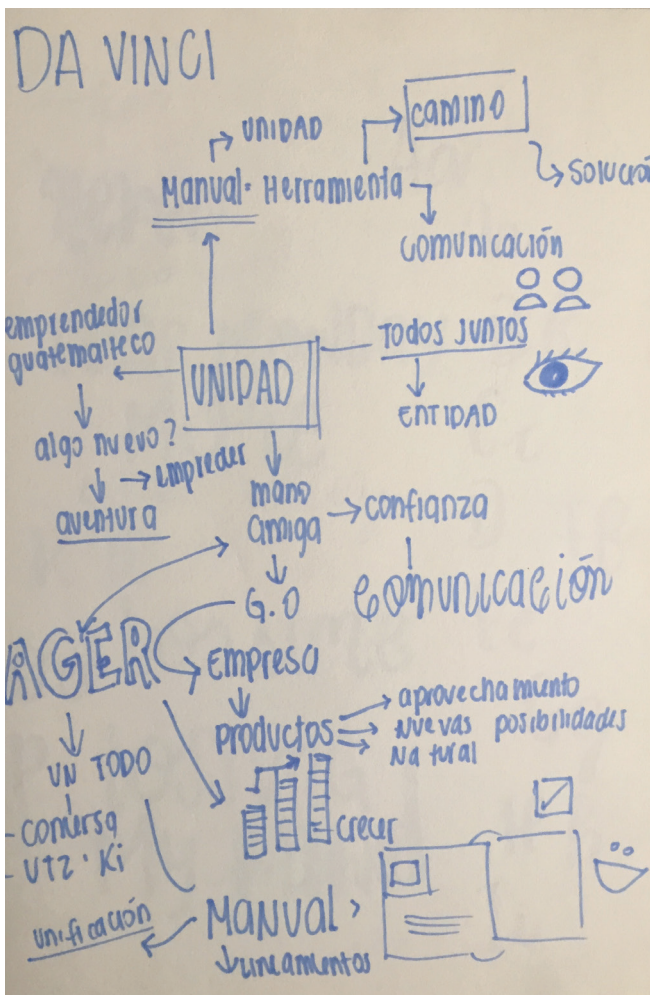 DA VINCI
UNIDAD
CAMINO
SOLUCIÓN
Manual = Herramienta
COMUNICACIÓN
emprendedor
guatemalteco
TODOS JUNTOS
UNIDAD
ENTIDAD
algo nuevo?
empreder
aventura
mano
amiga
confianza
COMUNICACIÓN
G.O
AGER
EMPRESA
productos
aprovechamiento
Nuevas posibilidades
Natural
UN TODO
- Conversa
- Utz · Ki
crecer
MANUAL
unificación
Lineamientos